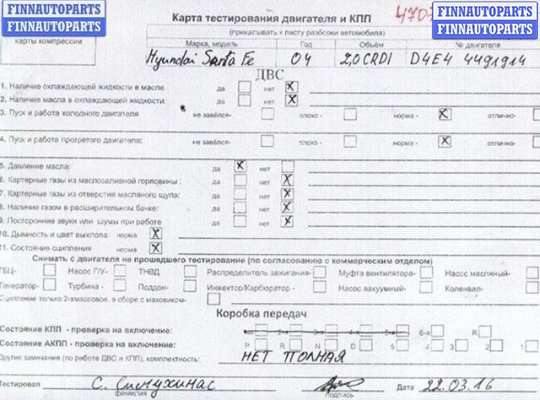 FINNAUTOPARTS FINNAUTOPARTS
FINNAUTOPARTS FINNAUTOPARTS
Карта тестирования двигателя и КПП
(прикалывать к листу разборки автомобиля)
карты компрессии
Марка, модель Год Объём № двигателя
Hyundai Santa Fe 04 2,0 CRDI D4E4 4491914
ДВС
1. Наличие охлаждающей жидкости в масле да нет X
2. Наличие масла в охлаждающей жидкости да нет X
3. Пуск и работа холодного двигателя не завёлся- плохо - норма - X отлично-
4. Пуск и работа прогретого двигателя: не завёлся- плохо - норма - X отлично-
5. Давление масла: да X нет
6. Картерные газы из маслозаливной горловины : да нет X
7. Картерные газы из отверстия масляного щупа: да нет X
8. Наличие газом в расширительном бачке: да нет X
9. Посторонние звуки или шумы при работе да нет X
10. Дымность и цвет выхлопа: норма X
11. Состояние сцепления норма X
Снимать с двигателя не прошедшего тестирование (по согласованию с коммерческим отделом)
ГБЦ- Насос ГУ- ТНВД Распределитель зажигания- Муфта вентилятора- Насос масляный-
Генератор- Турбина - Поддон- Инжектор/Карбюратор - Насос вакуумный- Коленвал-
Сцепление только 2-хмассовое, в сборе с маховиком-
Коробка передач
Состояние КПП - проверка на включение: 6-я R
Состояние АКПП - проверка на включение: P R N D 5 4 3 2 1
Другие замечания (по работе ДВС и КПП), комплектность: НЕТ ПОЛНАЯ
Тестировал С. Дата 22.03.16
фамилия подпись